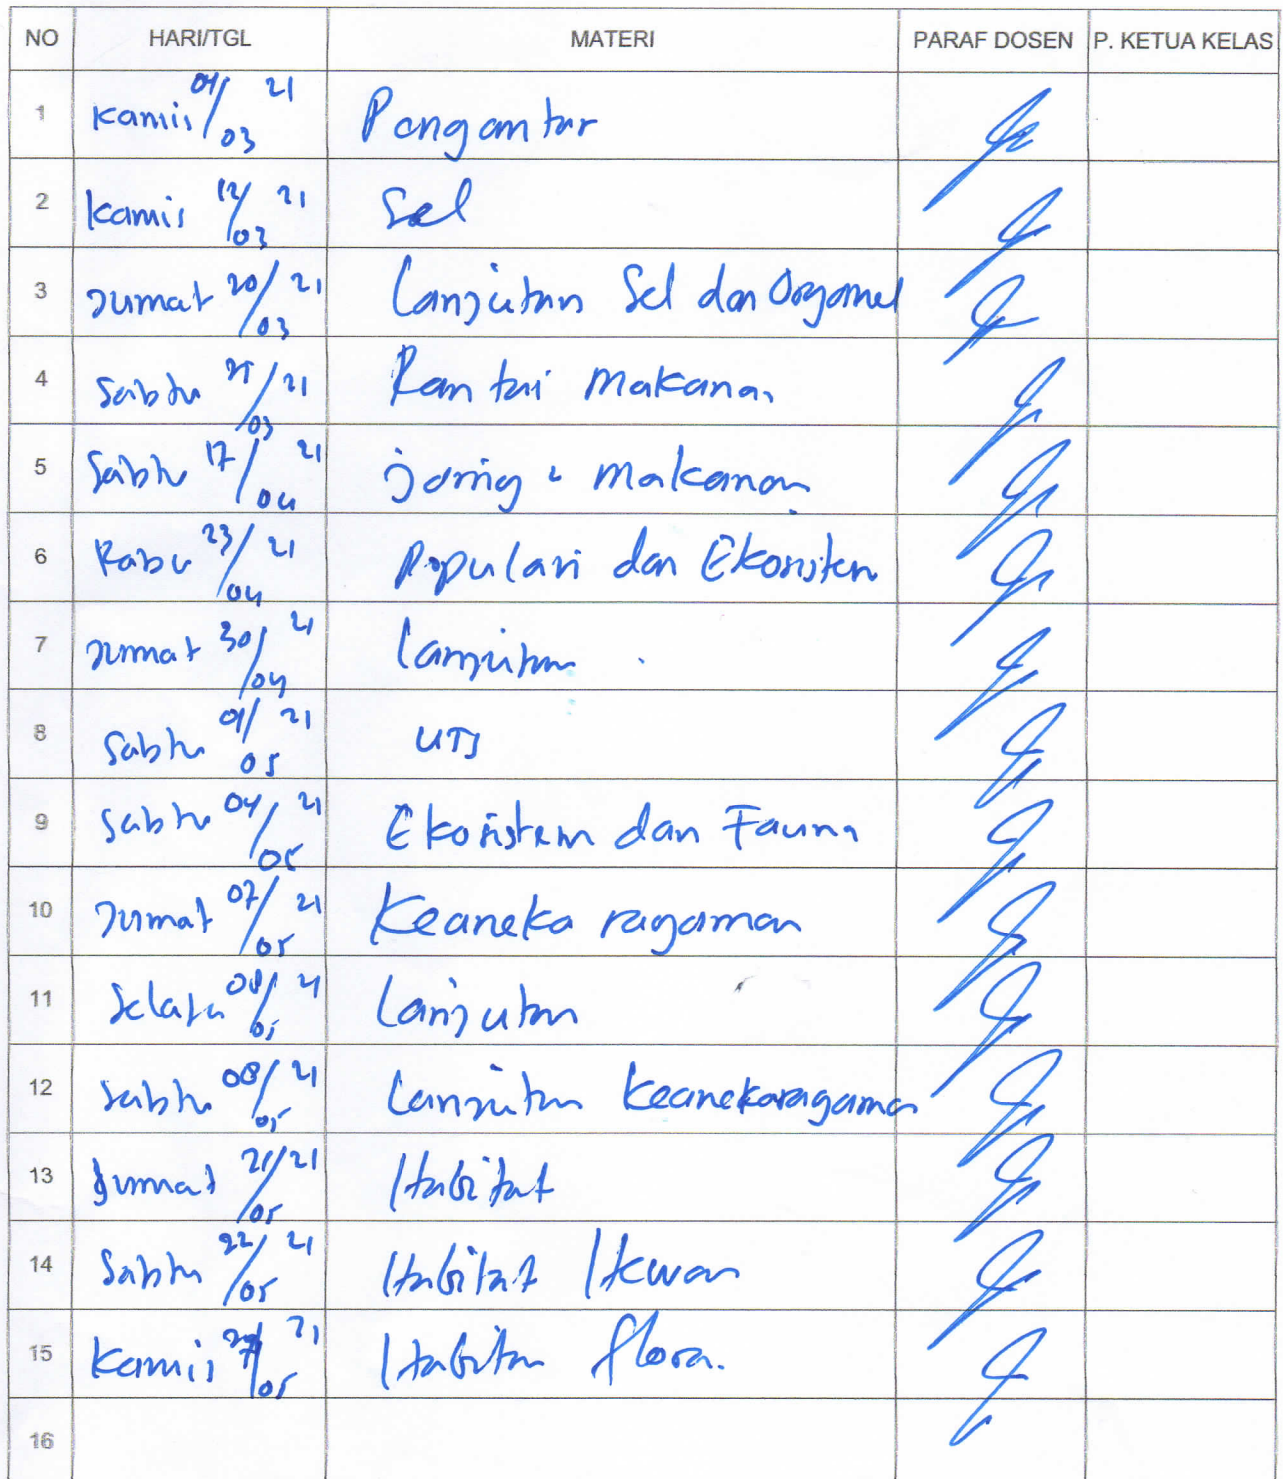 NO HARI/TGL MATERI PARAF DOSEN P. KETUA KELAS
1 Kamis 04/03 21 Pengantar
2 Kamis 12/03 21 Sel
3 Jumat 20/03 21 Lanjutan Sel dan Organel
4 Sabtu /03 21 Rantai Makanan
5 Sabtu 17/04 21 jaring 2 Makanan
6 Rabu 23/04 21 Populasi dan Ekosistem
7 Jumat 30/04 21 Lanjutan
8 Sabtu 01/05 21 UTS
9 Sabtu 04/05 21 Ekosistem dan Fauna
10 Jumat 07/05 21 Keaneka ragaman
11 Selasa 08/05 21 Lanjutan
12 Sabtu 08/05 21 Lanjutan Keanekaragaman
13 Jumat 21/05 21 Habitat
14 Sabtu 22/05 21 Habitat Hewan
15 Kamis /05 21 Habitat flora.
16